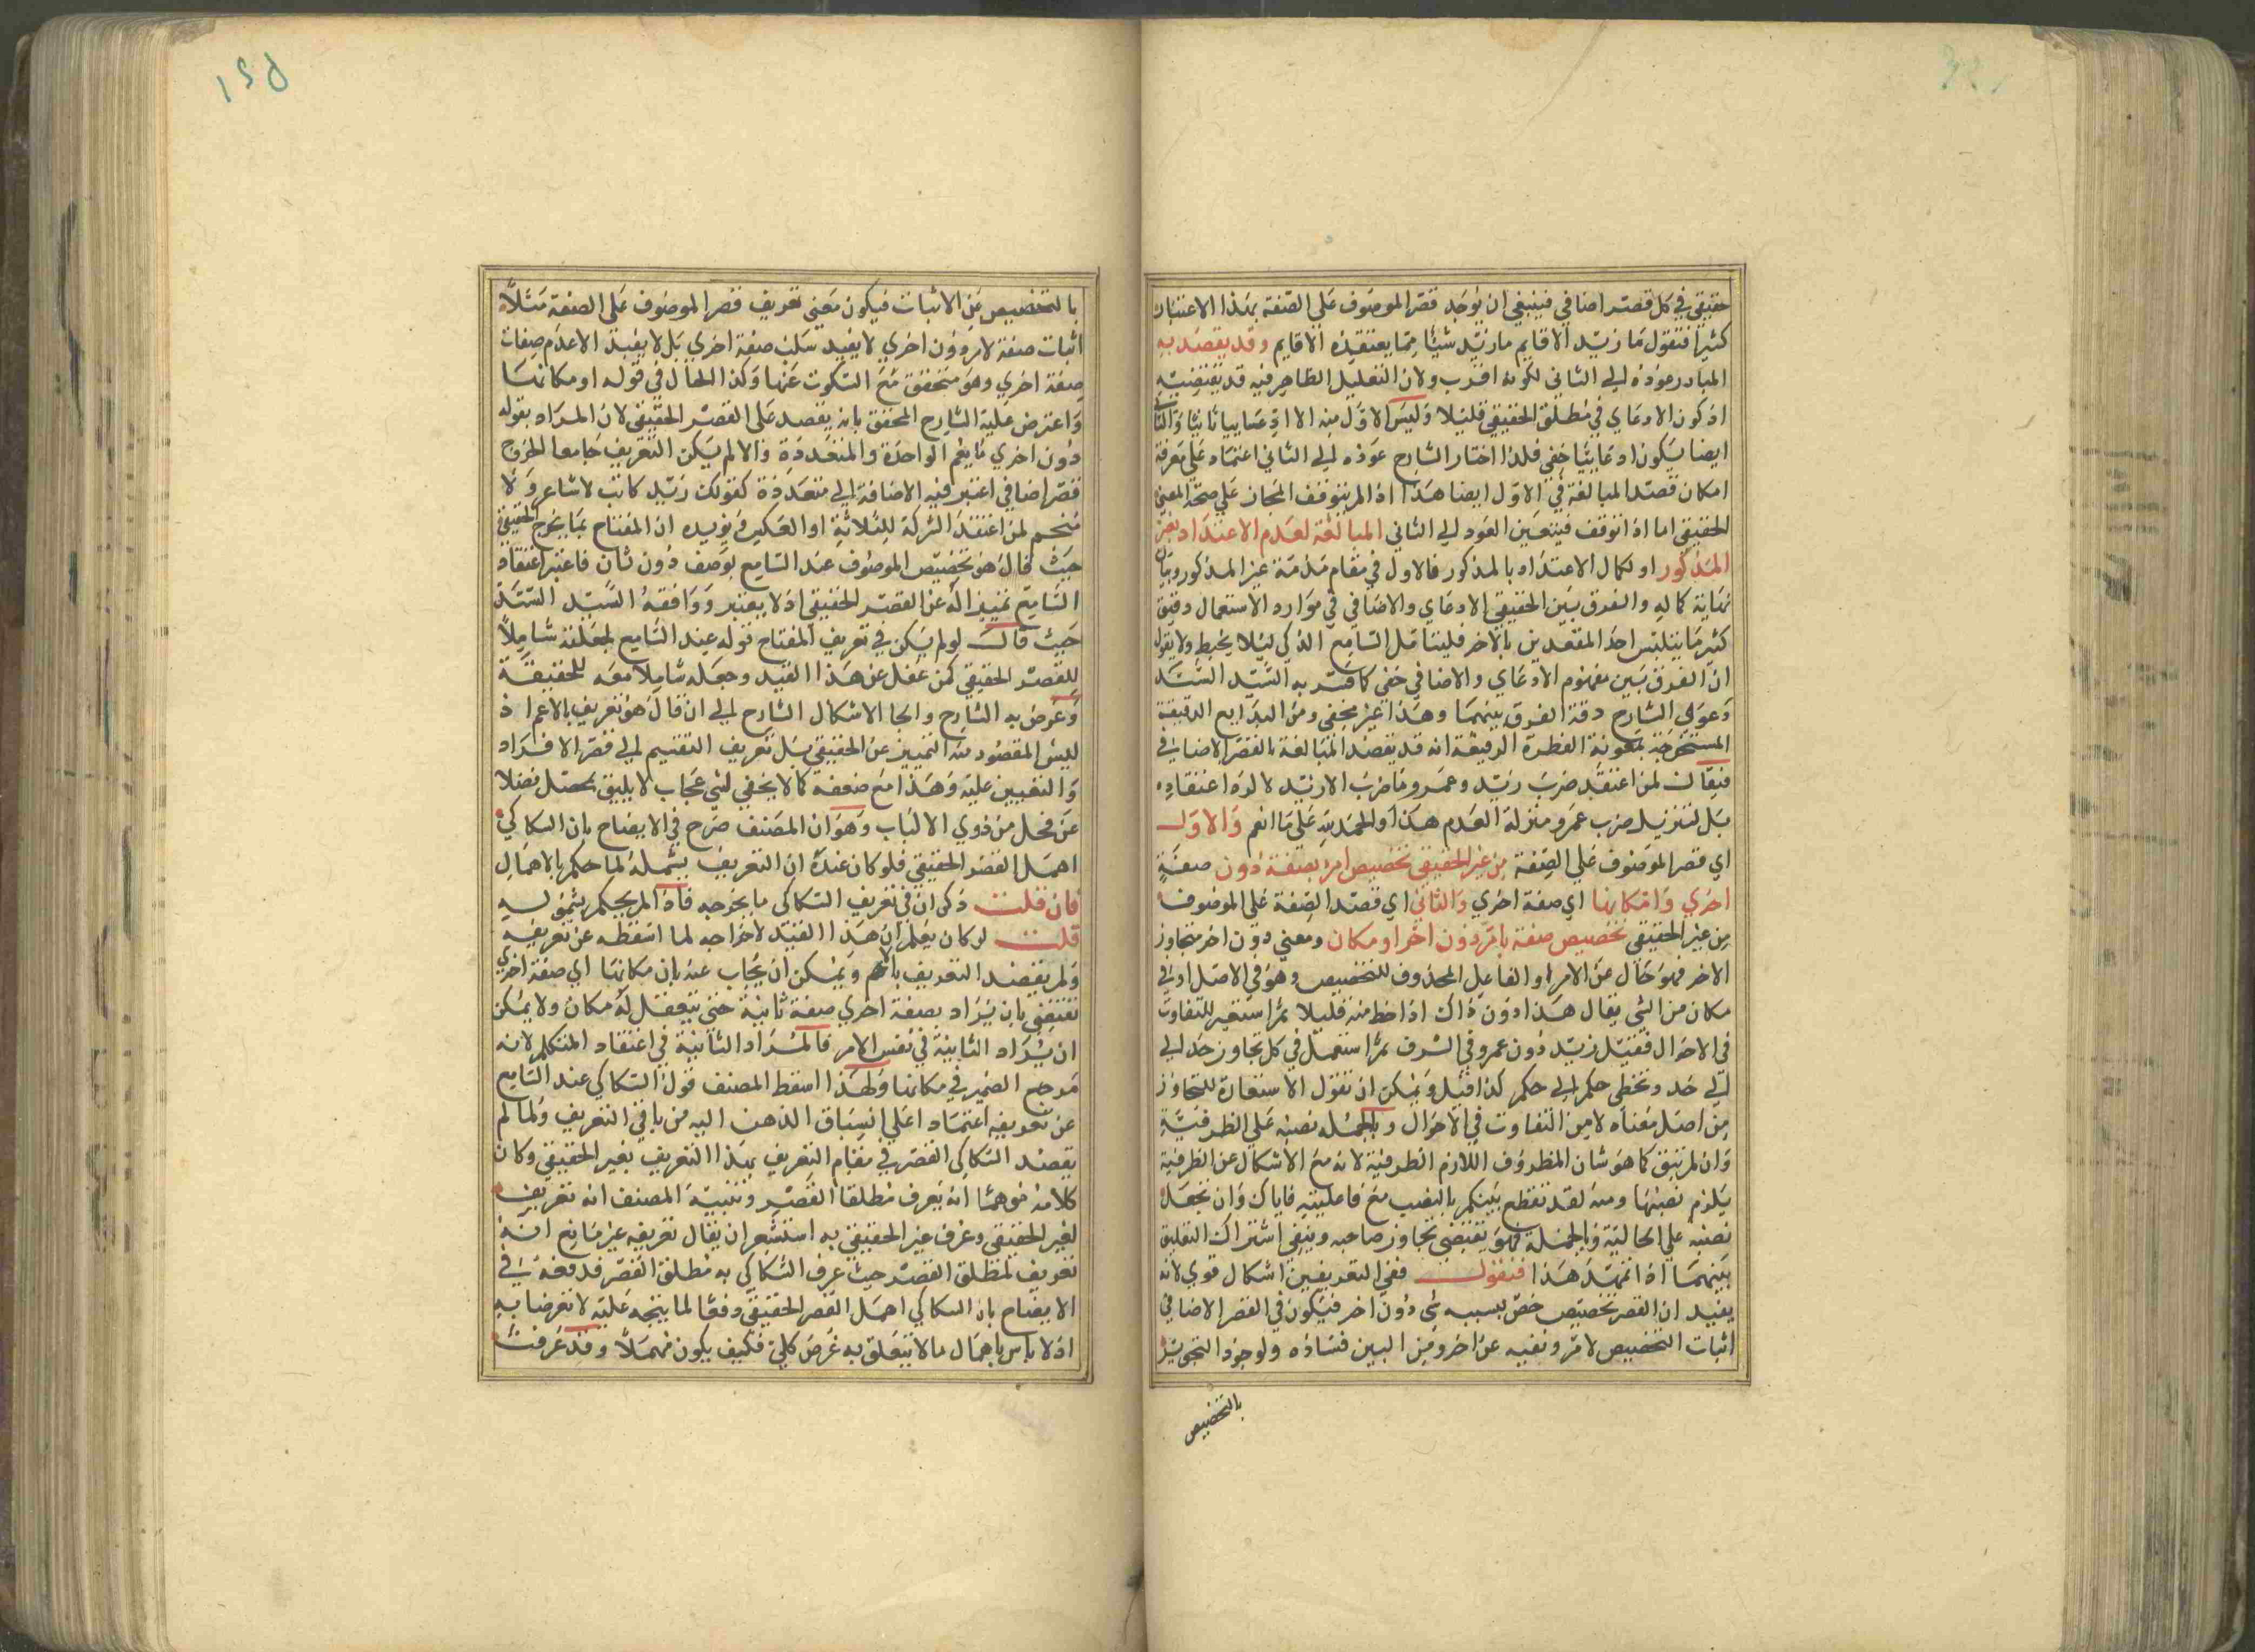 حقيقي في كل قصر اضافي فينبغي ان يوجد قصر الموصوف على الصفة بهذا الاعتبار
كثيرا فتقول ما زيد الا قايم ما زيد شيئا مما يعتقده الا قايم وقد يقصد به
المبادر عوده الى الثاني لكونه اقرب ولان التعليل الظاهر فيه قد يقتضيه
اذ كون الادعاي في مطلق الحقيقي قليلا وليس الاول منه الا ادعاييا ثانيا والثاني
ايضا يكون ادعاييا خفي فلذا اختار الشارح عوده الى الثاني اعتمادا على معرفة
امكان قصد المبالغة في الاول ايضا هذا اذا لم يتوقف المجاز على صحة المعنى
الحقيقي اما اذا توقف فيتعين العود الى الثاني المبالغة لعدم الاعتداد بغير
المذكور او لكمال الاعتداد بالمذكور فالاول في مقام مذمة غير المذكور وبيان
نهاية كماله والفرق بين الحقيقي الادعاي والاضافي في موارد الاستعمال دقيق
كثيرا ما يتلبس احد المقصدين بالاخر فليتامل السامع الذكي ليلا يخبط ولا يقول
ان الفرق بين مفهوم الادعاي والاضافي خفي كما فسر به السيد السند
دعوى الشارح دقة الفرق بينهما وهذا غير مخفي ومن البدايع الدقيقة
المستخرجة بمعونة الفطرة الرقيقة انه قد يقصد المبالغة بالقصر الاضافي
فيقال لمن اعتقد ضرب زيد وعمرو ما ضرب الا زيد لا لرد اعتقاده
بل لتنزيل ضرب عمرو منزلة العدم هذا والحمد لله على ما انعم والاول
اي قصر الموصوف على الصفة من غير الحقيقي تخصيص امر بصفة دون صفة
اخرى وامكانها اي صفة اخرى والثاني اي قصد الصفة على الموصوف
من غير الحقيقي تخصيص صفة بامر دون اخر او مكان ومعنى دون اخر متجاوز
الاخر فهو حال عن الامر او الفاعل المحذوف للتخصيص وهو في الاصل ادنى
مكان من الشي يقال هذا دون ذاك اذا حط منه قليلا ثم استعير للتفاوت
في الاحوال فقيل زيد دون عمرو في الشرف ثم استعمل في كل تجاوز حد الى
الى حد وتخطي حكم الى حكم كذا قيل ويمكن ان تقول الاستعارة للتجاوز
من اصل معناه لا من التفاوت في الاحوال وبالجملة نصبه على الظرفية
وان لم تبق كما هو شان المظروف اللازم الظرفية لانه مع الاشكال عن الظرفية
يلزم نصبها ومنه لقد تقطع بينكم بالنصب مع فاعليته فاياك وان تجعل
نصبه على الحالية وبالجملة فهو يقتضي تجاوز صاحبه وينفي اشتراك التعليق
بينهما اذا تمهد هذا فنقول ففي التعريفين اشكال قوي لانه
يفيد ان القصر تخصيص خص بسببه شي دون اخر فيكون في القصر الاضافي
اثبات التخصيص لامر ونفيه عن اخر ومن البين فساده ولوجود التجويز
بالتخصيص
١٢٥
بالتخصيص عن الاثبات فيكون معنى تعريف قصر الموصوف على الصفة مثلا
اثبات صفة لامر دون اخرى لا يفيد سلب صفة اخرى بل لا يفيد الا عدم صفات
صفة اخرى وهو متحقق مع السكوت عنها وكذا الحال في قوله او مكانها
واعترض عليه الشارح المحقق بانه يقصد على القصر الحقيقي لان المراد بقوله
دون اخرى ما يعم الواحدة والمتعددة والا لم يكن التعريف جامعا لخروج
قصر اضافي اعتبر فيه الاضافة الى متعددة كقولك زيد كاتب لا شاعر ولا
منجم لمن اعتقد الشركة للثلاثة او العكس ويويده ان المفتاح بما يخرج الحقيقي
حيث قال هو تخصيص الموصوف عند السامع بوصف دون ثان فاعتبر اعتقاد
السامع تمييزا له عن القصر الحقيقي اذ لا يعتبر ووافقه السيد السند
حيث قال لو لم يكن في تعريف المفتاح قوله عند السامع لجعلنه شاملا
للقصر الحقيقي كمن غفل عن هذا القيد وجعله شاملا معه للحقيقة
وعرض به الشارح والجا الاشكال الشارح الى ان قال هو تعريف بالاعم اذ
ليس المقصود منه التمييز عن الحقيقي بل تعريف التقسيم الى قصر الافراد
والتعيين عليه وهذا مع ضعفه كما لا يخفى لشي عجاب لا يليق بمحصل فضلا
عن فحل من ذوي الالباب وهو ان المصنف صرح في الايضاح بان السكاكي
اهمل القصر الحقيقي فلو كان عنده ان التعريف يشمله لما حكم بالاهمال
فان قلت ذكر ان في تعريف السكاكي ما يخرجه فاذا لم يحكم بشموله
قلت لو كان يعلم ان هذا القيد لاخراجه لما اسقطه عن تعريفه
ولم يقصد التعريف بالاعم ويمكن ان يجاب عنه بان مكانها اي صفة اخرى
تقتضي بان يراد بصفة اخرى صفة ثانية حتى يتعقل له مكان ولا يمكن
ان يراد الثانية في نفس الامر فالمراد الثانية في اعتقاد المتكلم لانه
مرجع الضمير في مكانها ولهذا اسقط المصنف قول السكاكي عند السامع
عن تعريفه اعتمادا على انسباق الذهن اليه من باقي التعريف ولما لم
يقصد السكاكي القصر في مقام التعريف بهذا التعريف بغير الحقيقي وكان
كلامه موهما انه يعرف مطلقا القصر ونبيه المصنف انه تعريف
لغير الحقيقي وعرف غير الحقيقي به استشعر ان يقال تعريفه غير مانع انه
تعريف لمطلق القصر حيث عرف السكاكي به مطلق القصر فدفعه في
الايضاح بان السكاكي اهمل القصر الحقيقي دفعا لما يتجه عليه لا تعرضا به
اذ لا باس باهمال ما لا يتعلق به غرض كلي فكيف يكون مهملا وقد عرفت